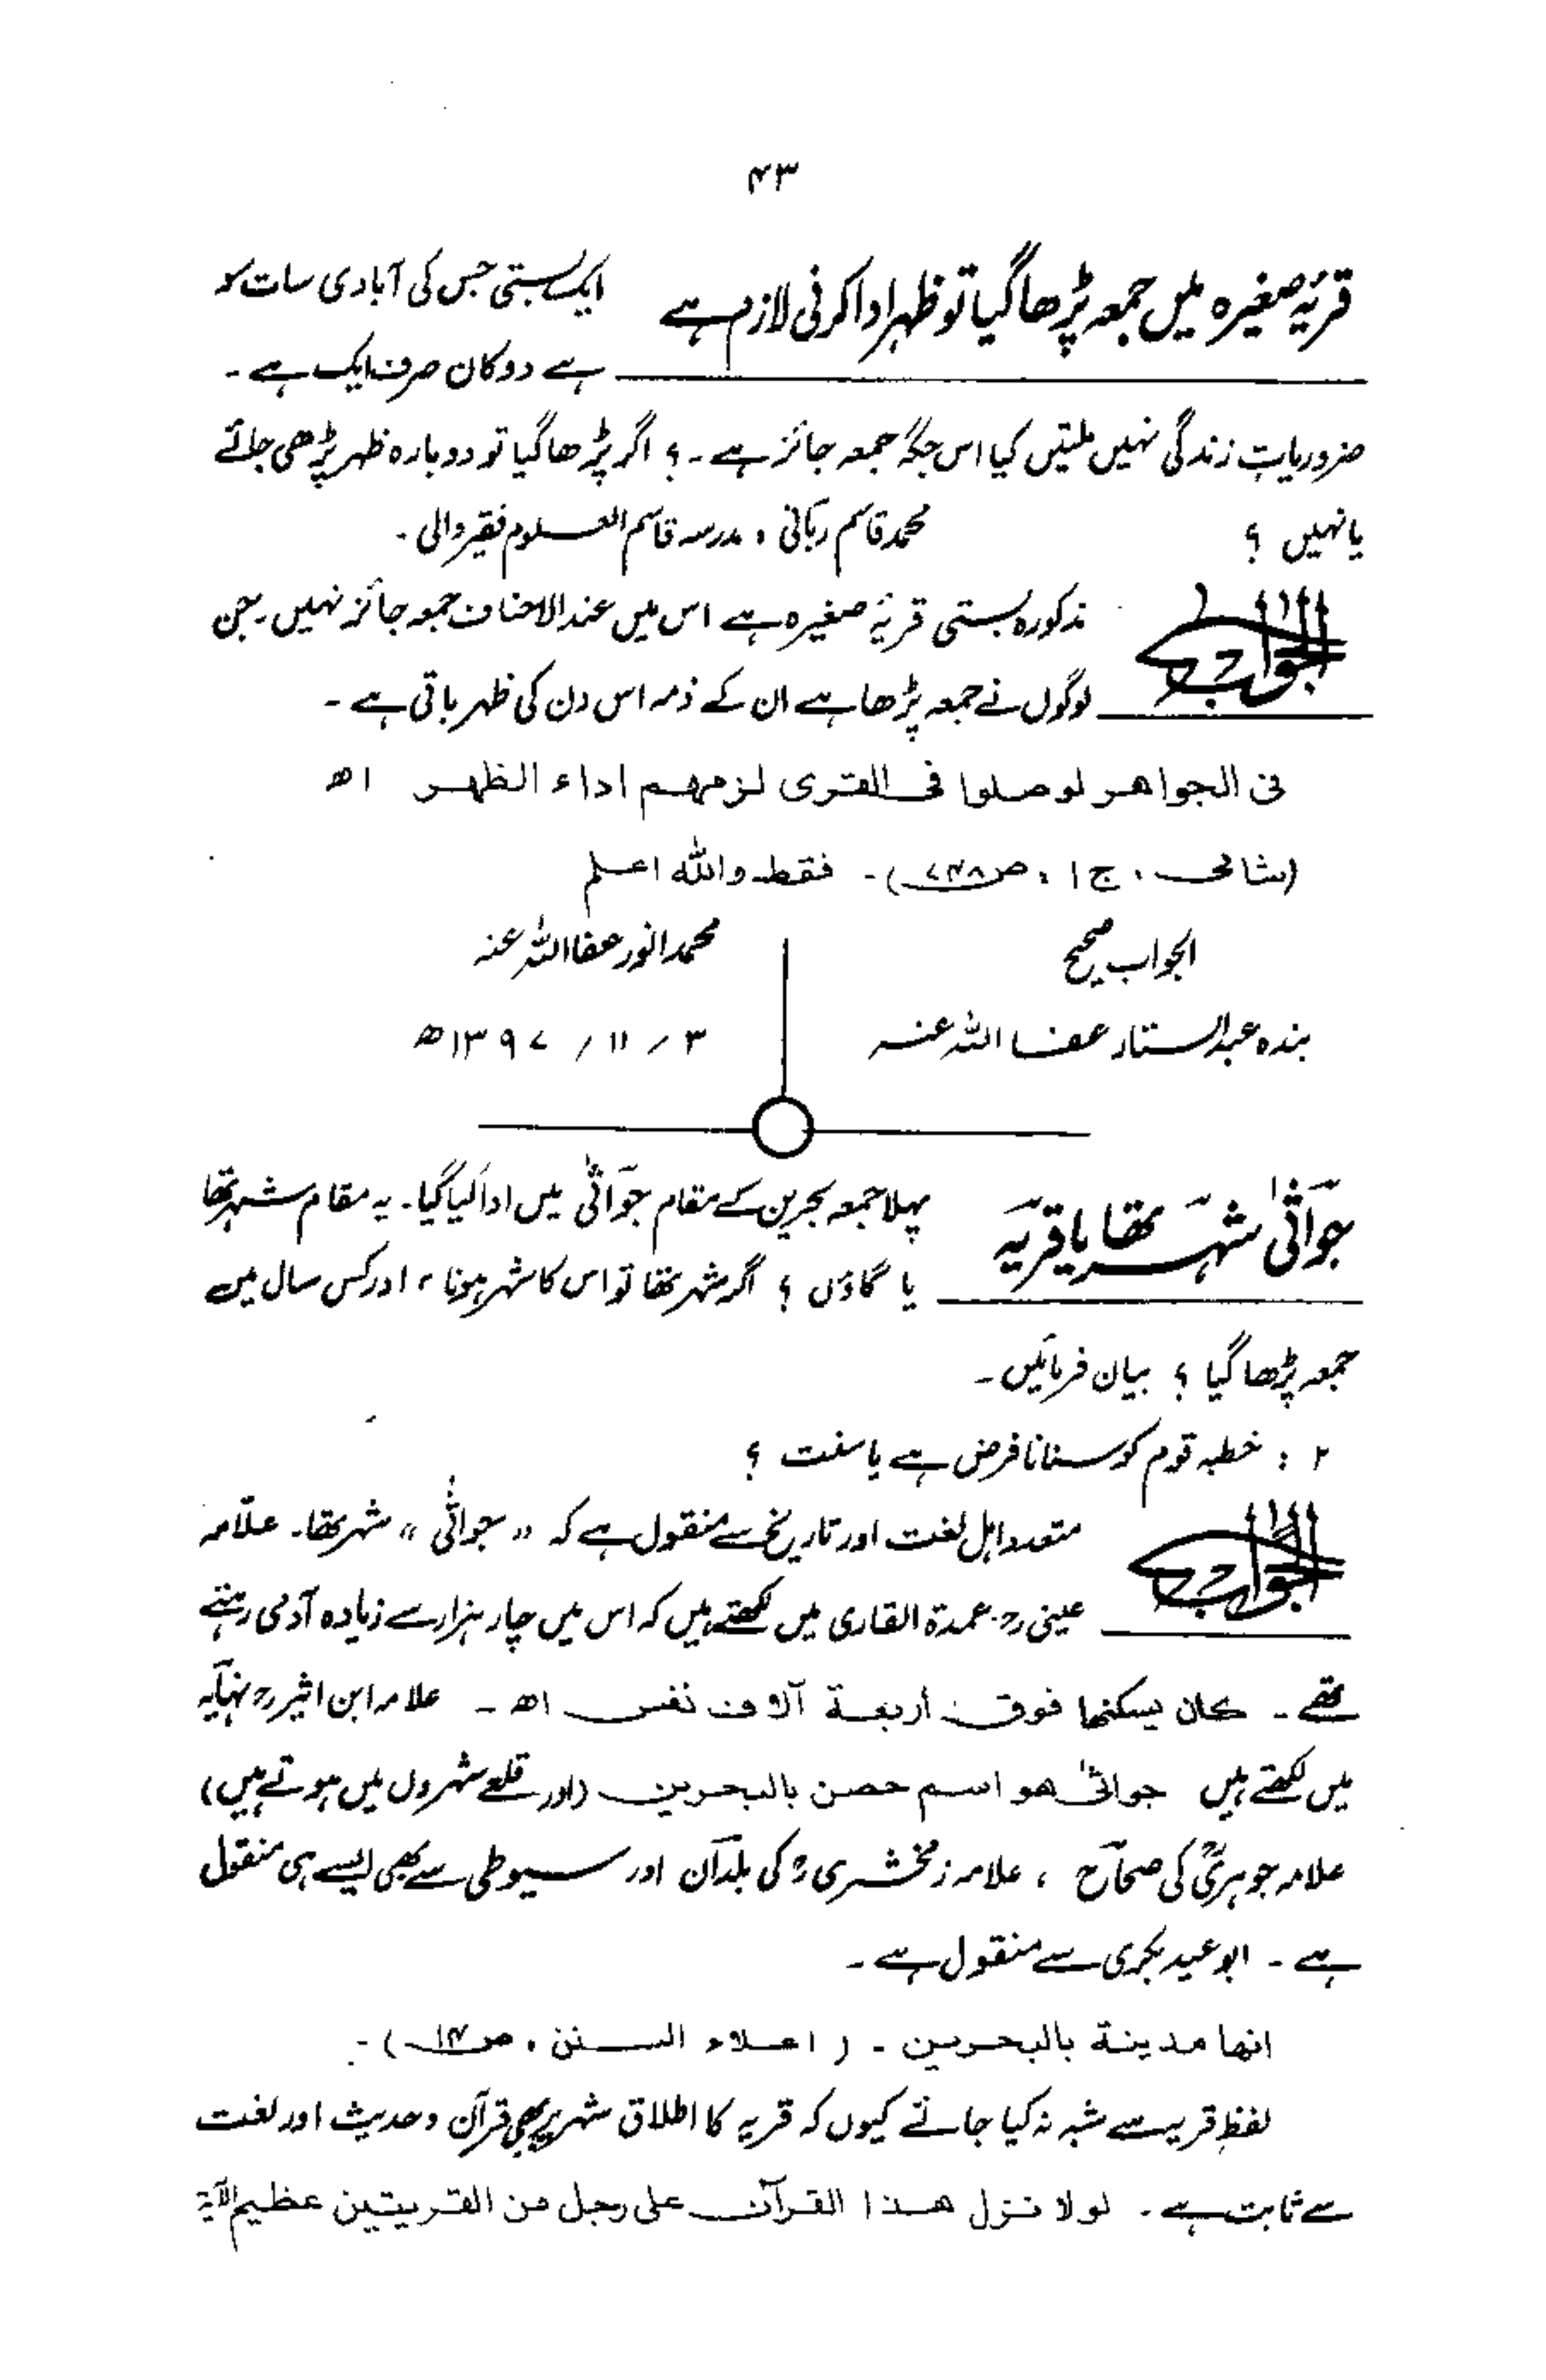 ۴۳
قریۂ صغیرہ میں جمعہ پڑھا گیا تو ظہر ادا کرنی لازم ہے
ایک بستی جس کی آبادی سات سو
ہے دوکان صرف ایک ہے ۔
ضروریاتِ زندگی نہیں ملتیں کیا اس جگہ جمعہ جائز ہے ۔ ؟ اگر پڑھا گیا تو دوبارہ ظہر پڑھی جائے
یا نہیں ؟ محمد قاسم ربانی ، مدرسہ قاسم العلوم فقیر والی ۔
الجواب
مذکورہ بستی قریۂ صغیرہ ہے اس میں عند الاحناف جمعہ جائز نہیں ۔ جن
لوگوں نے جمعہ پڑھا ہے ان کے ذمہ اس دن کی ظہر باقی ہے ۔
فی الجواهر لو صلوا فی القری لزمهم اداء الظهر اھ
(شامی ، ج ۱ ، ص ۷۴۸) ۔ فقط واللہ اعلم
الجواب صحیح
بندہ عبدالستار عفا اللہ عنہ
محمد انور عفا اللہ عنہ
۳ / ۱۱ / ۱۳۹۷ھ
جَوَاثیٰ شہر تھا یا قریہ
پہلا جمعہ بحرین کے مقام جَوَاثیٰ میں ادا کیا گیا ۔ یہ مقام شہر تھا
یا گاؤں ؟ اگر شہر تھا تو اس کا شہر ہونا ، اور کس سال میں
جمعہ پڑھا گیا ؟ بیان فرمائیں ۔
۲ : خطبہ قوم کو سنانا فرض ہے یا سنت ؟
الجواب
متعدد اہل لغت اور تاریخ سے منقول ہے کہ " جواثیٰ " شہر تھا ۔ علّامہ
عینی رح عمدۃ القاری میں لکھتے ہیں کہ اس میں چار ہزار سے زیادہ آدمی رہتے
تھے ۔ کان یسکنها فوق أربعة آلاف نفس اھ ۔ علامہ ابن اثیر رح نہایہ
میں لکھتے ہیں جواثیٰ هو اسم حصن بالبحرین (اور قلعے شہروں میں ہوتے ہیں)
علامہ جوہریؒ کی صحاح ، علامہ زمخشری رح کی بلدان اور سیوطی سے بھی ایسے ہی منقول
ہے ۔ ابو عبید بکری سے منقول ہے ۔
انها مدینة بالبحرین ۔ ( اعلاء السنن ، ص ۱۴ ) ۔
لفظِ قریہ سے شبہ نہ کیا جائے کیوں کہ قریہ کا اطلاق شہر پر بھی قرآن و حدیث اور لغت
سے ثابت ہے ۔ لولا نزل هذا القرآن علی رجل من القریتین عظیم الآیۃ